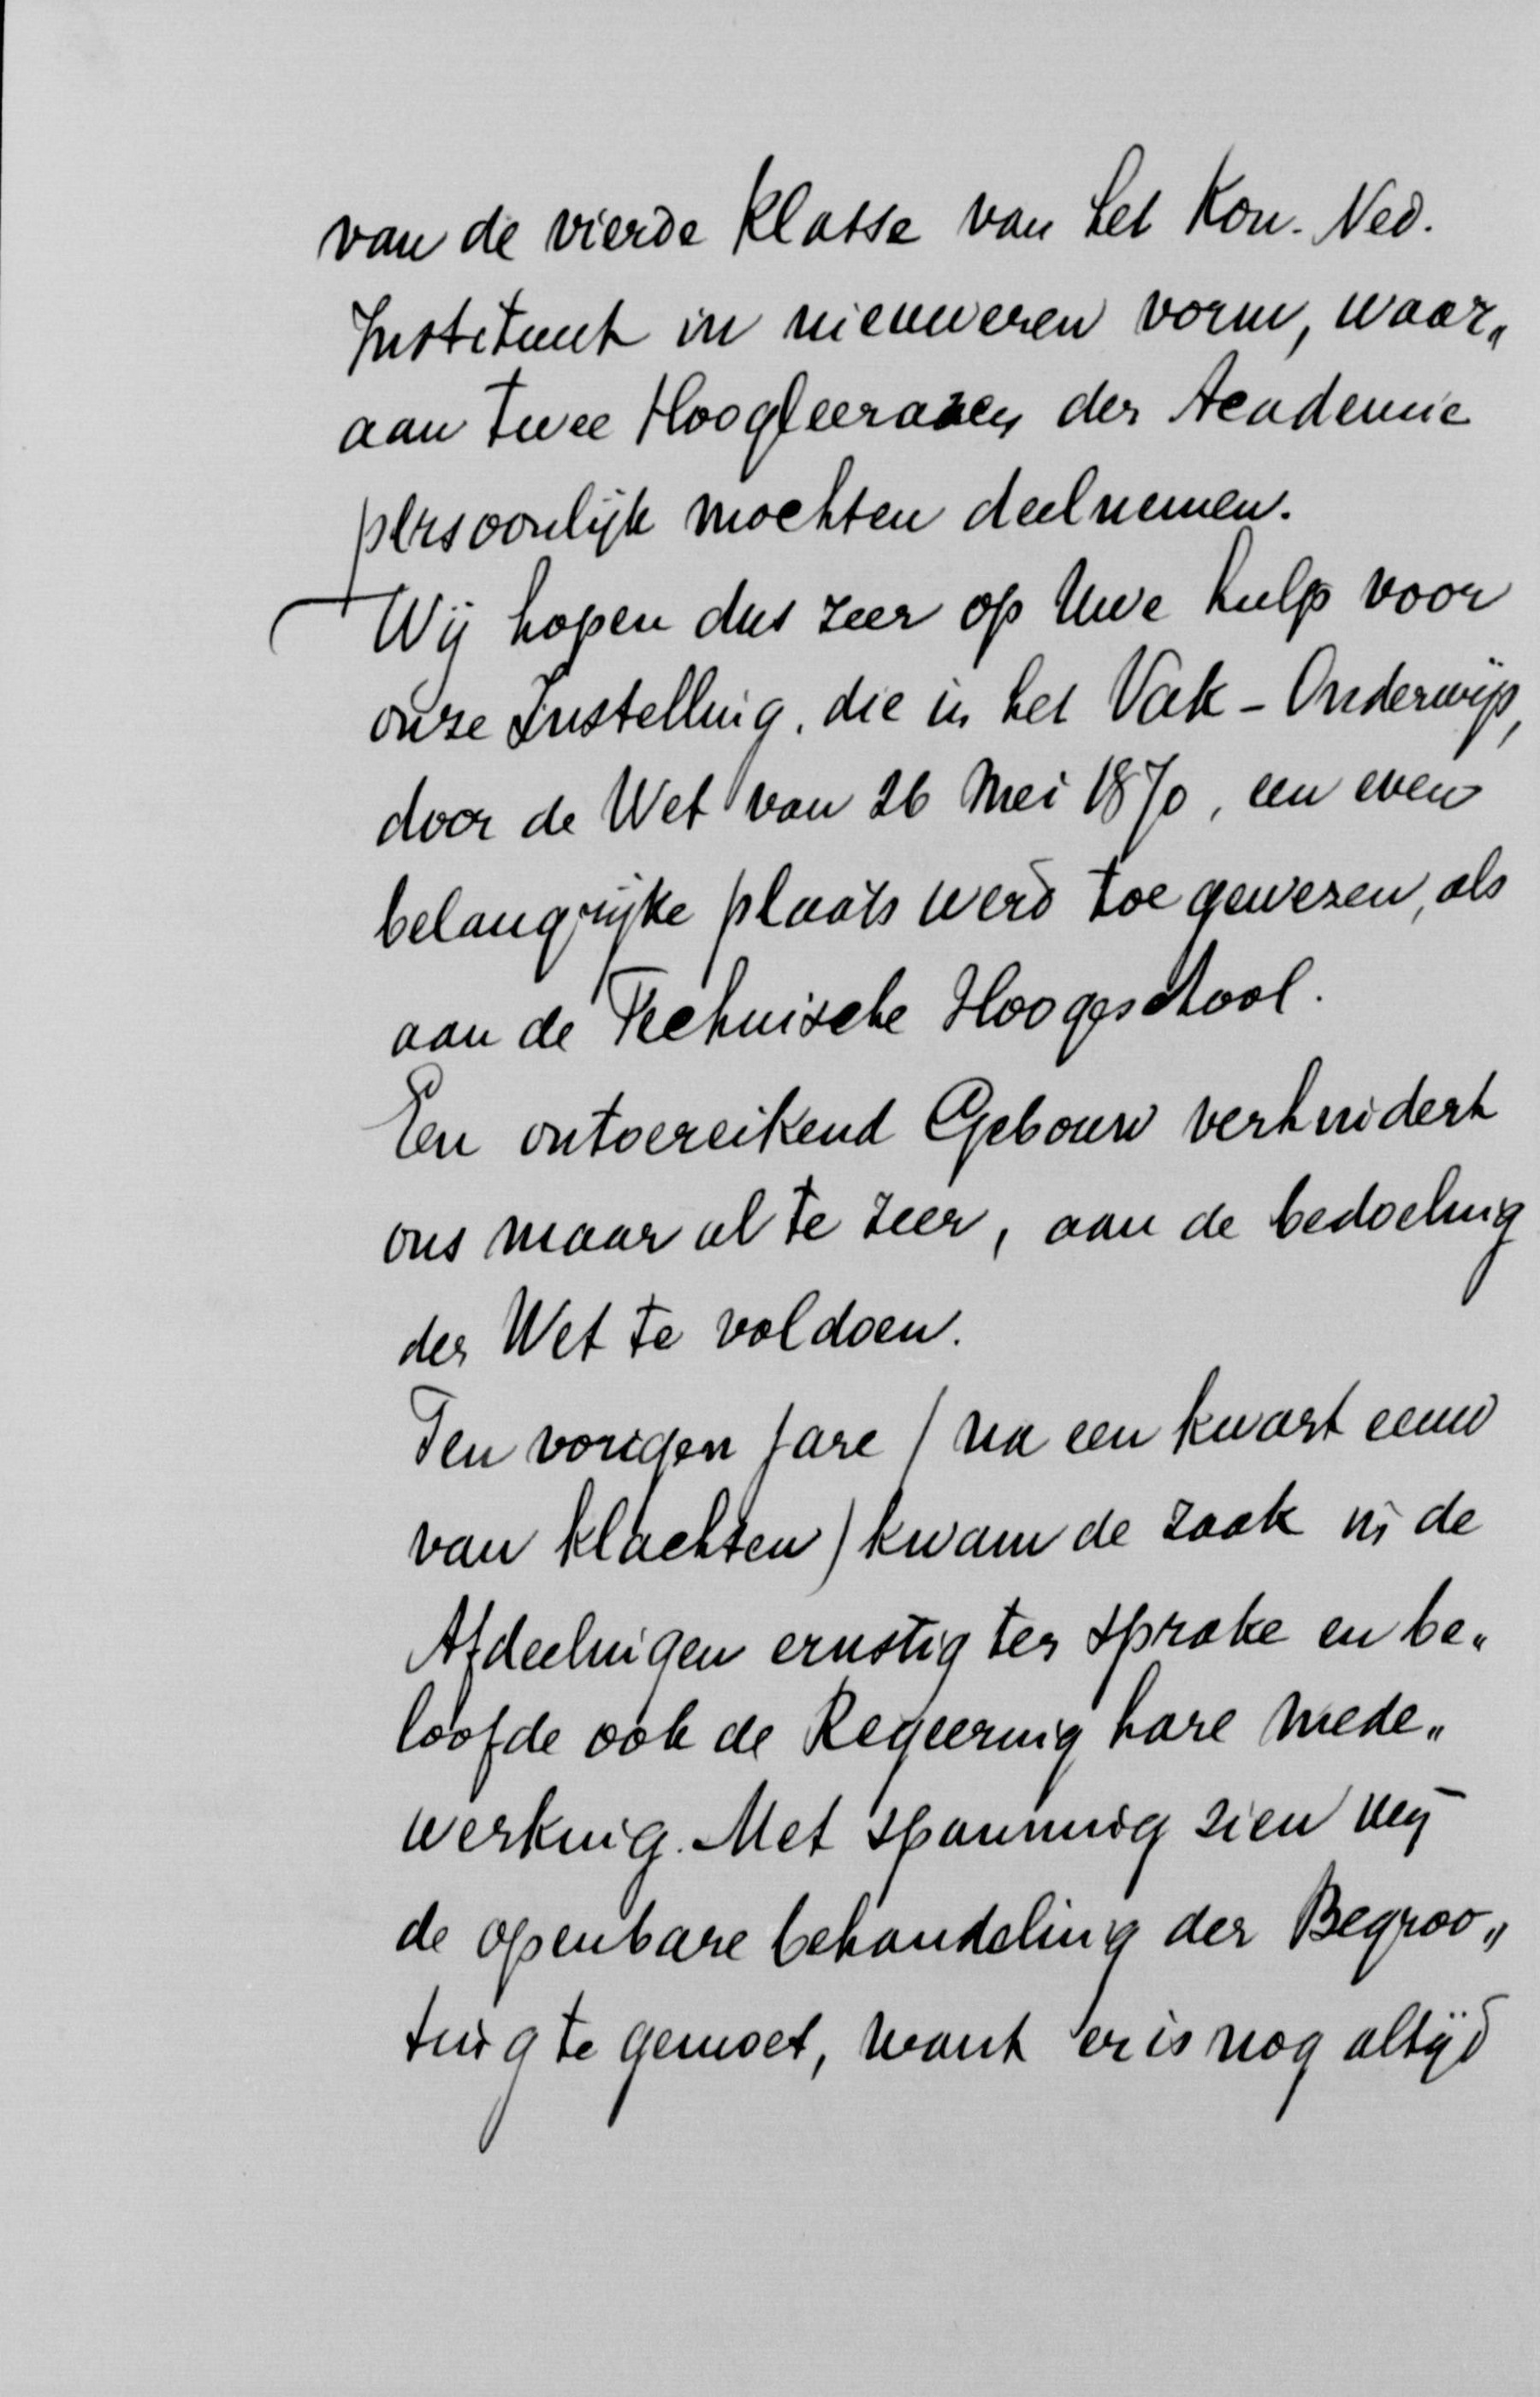 van de vierde klasse van het Kon. Ned.
Instituut in nieuweren vorm, waar„
aan twee Hoogleeraren der Academie
persoonlijk mochten deelnemen.
Wij hopen dus zeer op Uwe hulp voor
onze Instelling, die in het Vak-Onderwijs,
door de Wet van 26 Mei 1870, een even
belangrijke plaats werd toegewezen, als
aan de Technische Hoogeschool.
Een ontoereikend Gebouw verhindert
ons maar al te zeer, aan de bedoeling
der Wet te voldoen.
Ten vorigen jare (na een kwart eeuw
van klachten) kwam de zaak in de
Afdeelingen ernstig ter sprake en be„
loofde ook de Regeering hare mede„
werking. Met spanning zien wij
de openbare behandeling der Begroo„
ting te gemoet, want er is nog altijd